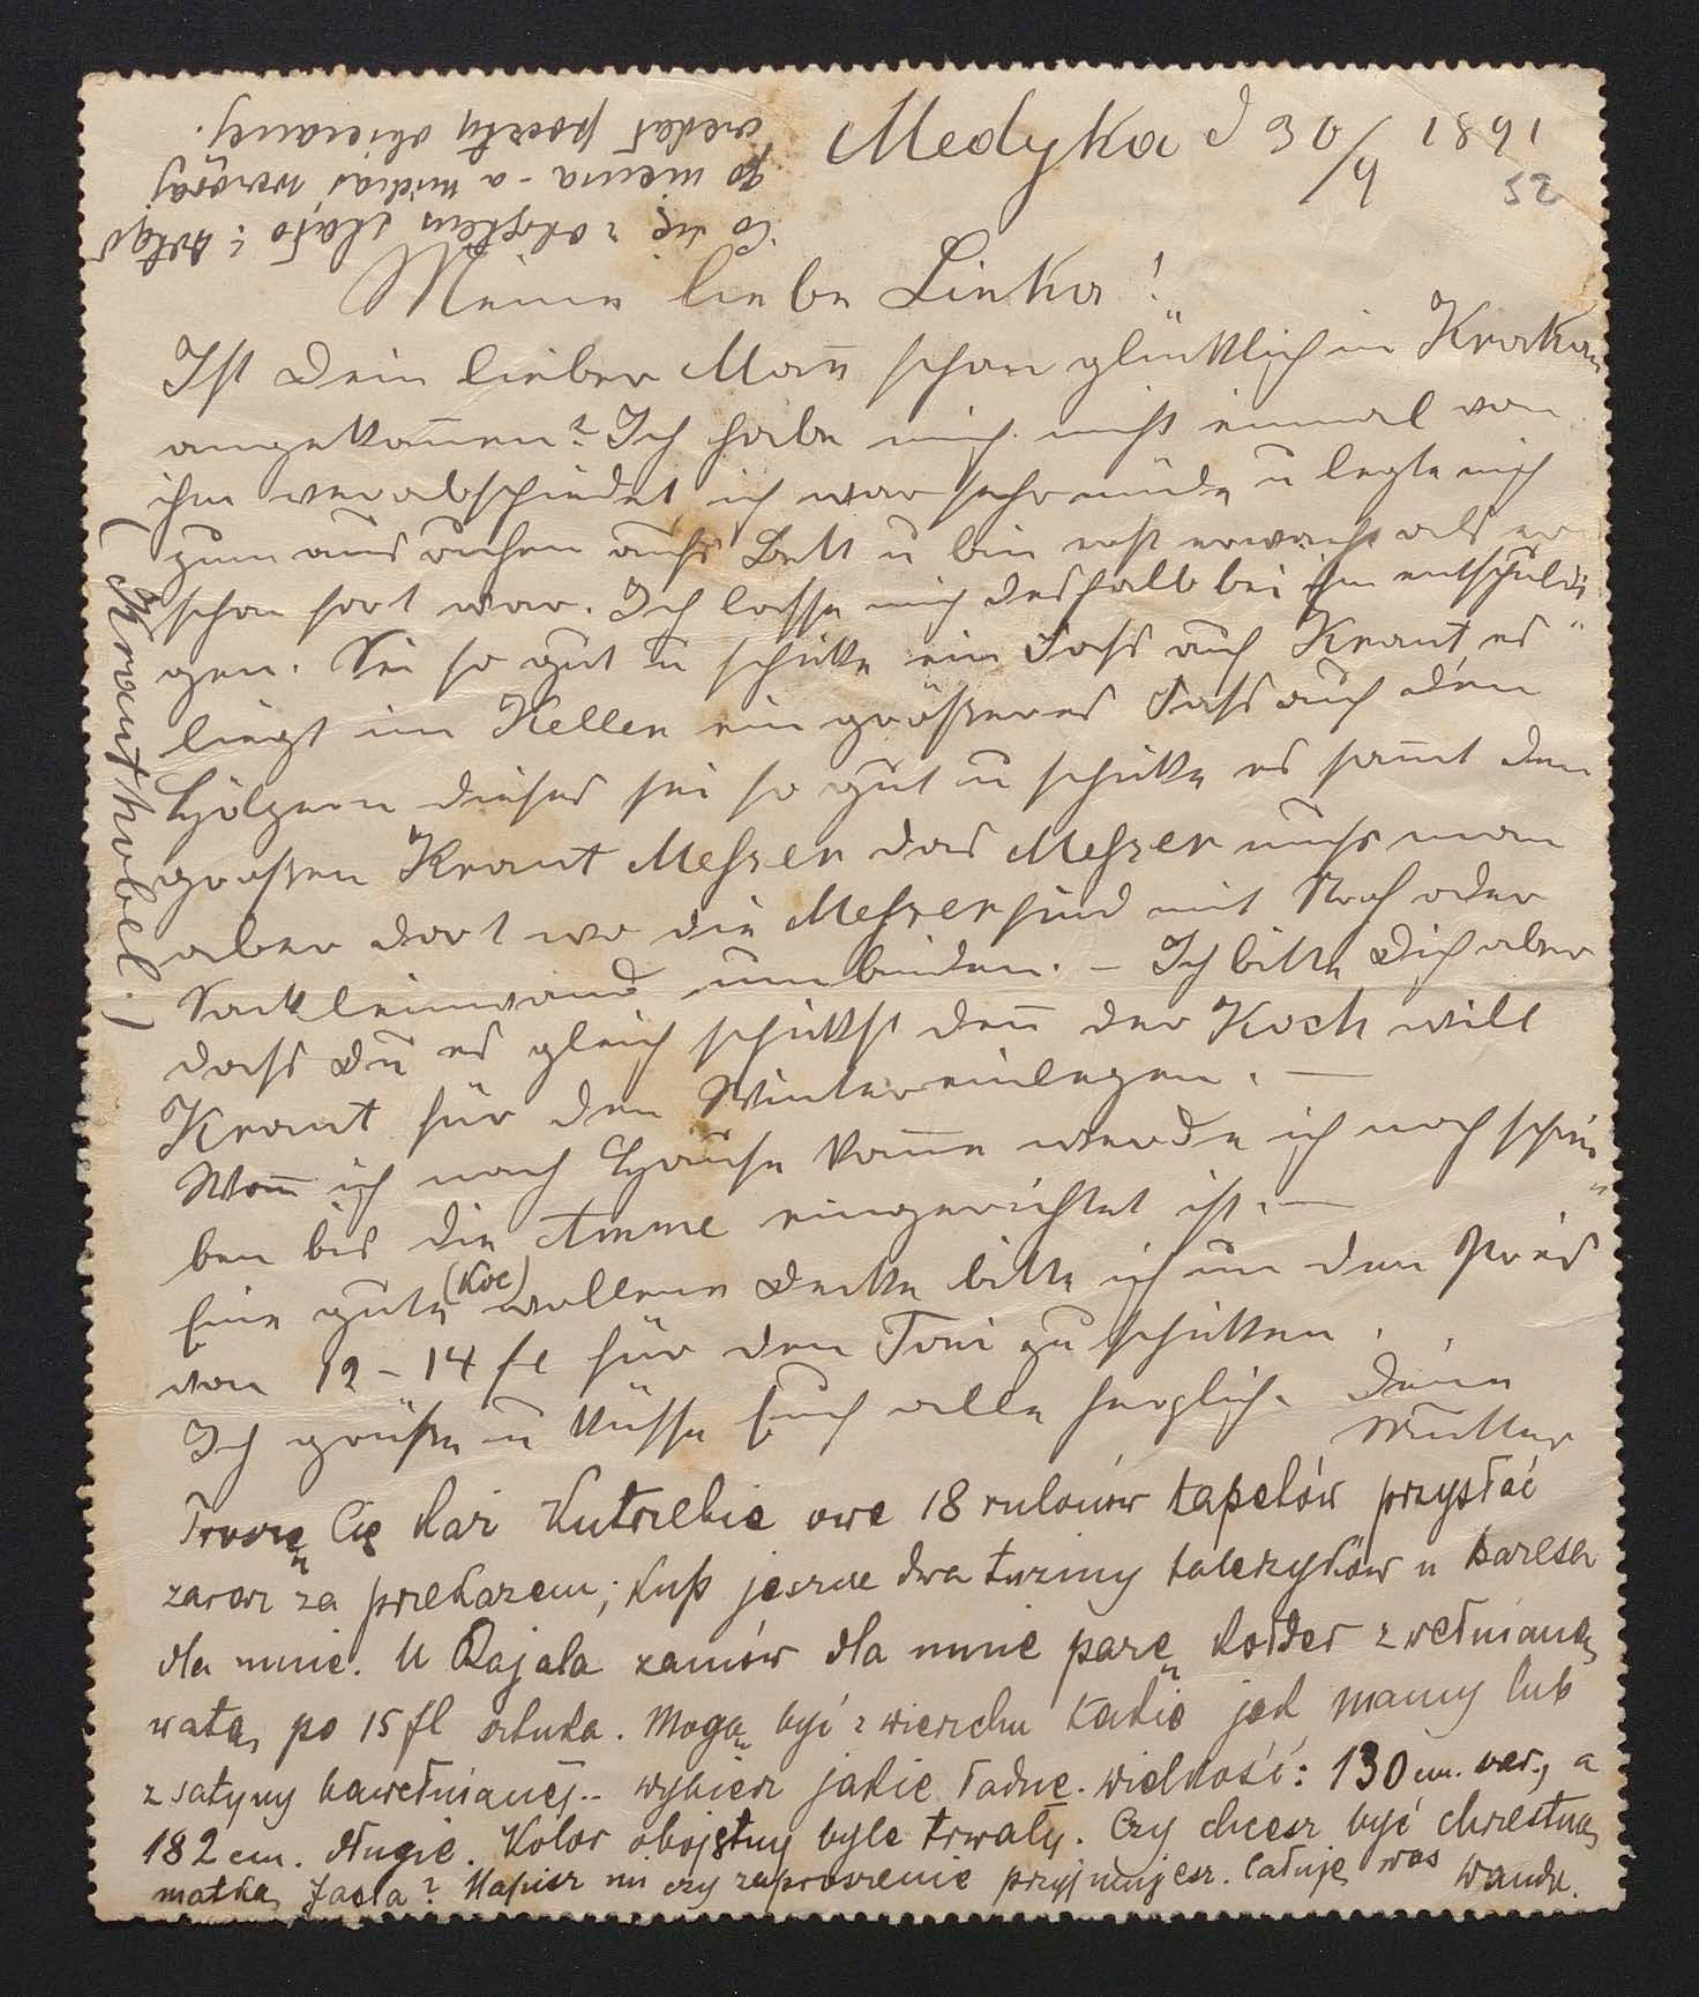 Medyka d 30/9 1891
52
Meine liebe Linka!
Ist Dein lieber Mann schon glücklich in Krakau
angekommen? Ich habe mich nicht einmal von
ihm verabschiedet ich war sehr müde u legte mich
zum ausruhen aufs Bett u bin erst erwacht als er
schon fort war. Ich lasse mich deshalb bei ihm entschuldi
gen. Sei so gut u schicke ein Fass auf Kraut es
liegt im Keller ein grösseres Fass auf den
Hölzern dieses sei so gut u schicke es sammt dem
grossen Kraut Messer das Messer muss man
aber dort wo die Messer sind mit Stroh oder
Sackleinwand umbinden. – Ich bitte Dich aber
dass Du es gleich schickst denn der Koch will
Kraut für den Winter einlegen. —
Wenn ich nach Hause komme werde ich noch schrei
ben bis die Amme eingerichtet ist. —
Eine gute (Koc) wollene Decke bitte ich um den Preis
von 12 – 14 fl für den Toni zu schicken.
Ich grüsse u küsse Euch alle herzlich. Deine
Mutter
(Krauthobel.)
Proszę Cię każ Kutrzebie owe 18 rulonów tapetów przysłać
zaraz za przekazem; kup jeszcze dwa tuziny talerzyków u
dla mnie. U Rajala zamów dla mnie parę kołder z wełnianą
watą po 15 fl sztuka. Mogą być z wierzchu takie jak mamy lub
z satyny bawełnianej.. wybierz jakie ładne. wielkość: 130 cm. szer., a
182 cm. długie. Kolor obojętny byle trwały. Czy chcesz być chrzestną
matką Jasia? Napisz mi czy zaproszenie przyjmujesz. Całuję was Wanda.
Co się z stało?
to niema – a miałaś wczoraj
posłać poczty